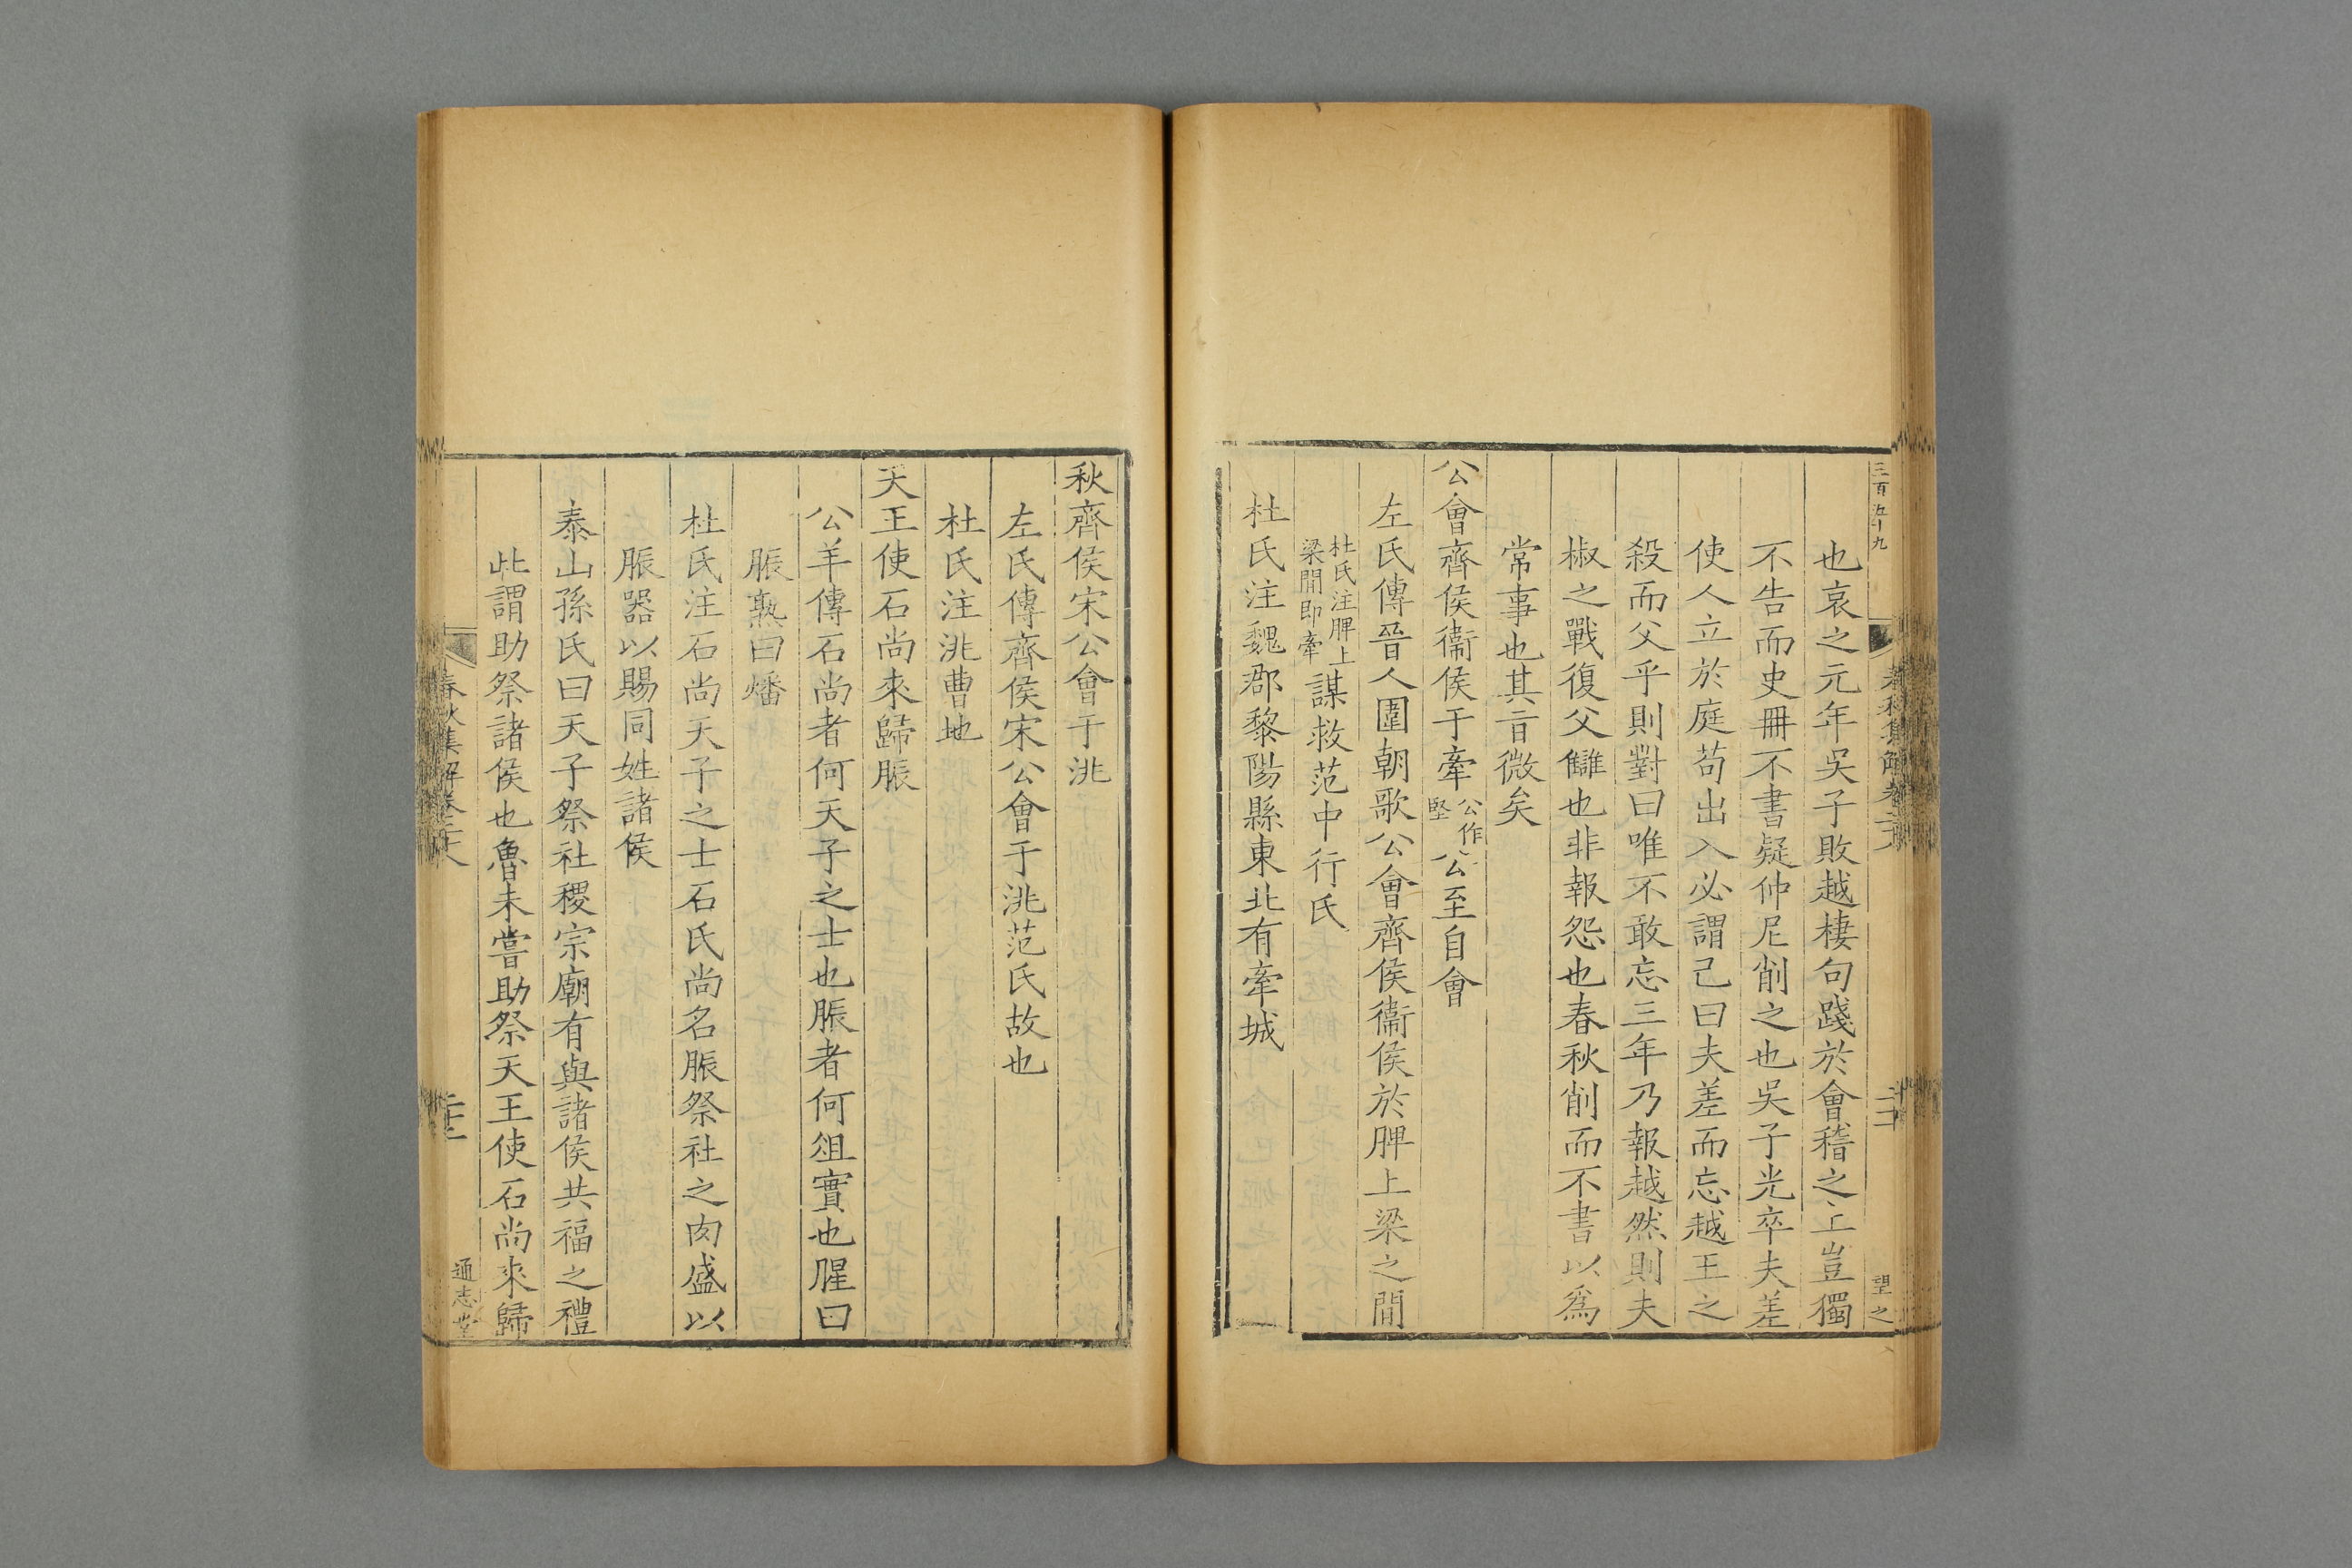 三百五十九
望之
也哀之元年吳子敗越棲句踐於會稽之上豈獨
不告而史冊不書疑仲尼削之也吳子光卒夫差
使人立於庭苟出入必謂己曰夫差而忘越王之
殺而父乎則對曰唯不敢忘三年乃報越然則夫
椒之戰復父讎也非報怨也春秋削而不書以為
常事也其旨微矣
公會齊侯衞侯于牽公作堅公至自會
左氏傳晉人圍朝歌公會齊侯衞侯於脾上梁之閒
杜氏注脾上梁閒即牽謀救范中行氏
杜氏注魏郡黎陽縣東北有牽城
秋齊侯宋公會于洮
左氏傳齊侯宋公會于洮范氏故也
杜氏注洮曹地
天王使石尚來歸脤
公羊傳石尚者何天子之士也脤者何俎實也腥曰
脤熟曰燔
杜氏注石尚天子之士石氏尚名脤祭社之肉盛以
脤器以賜同姓諸侯
泰山孫氏曰天子祭社稷宗廟有與諸侯共福之禮
此謂助祭諸侯也魯未嘗助祭天王使石尚來歸
春秋集解卷
通志堂